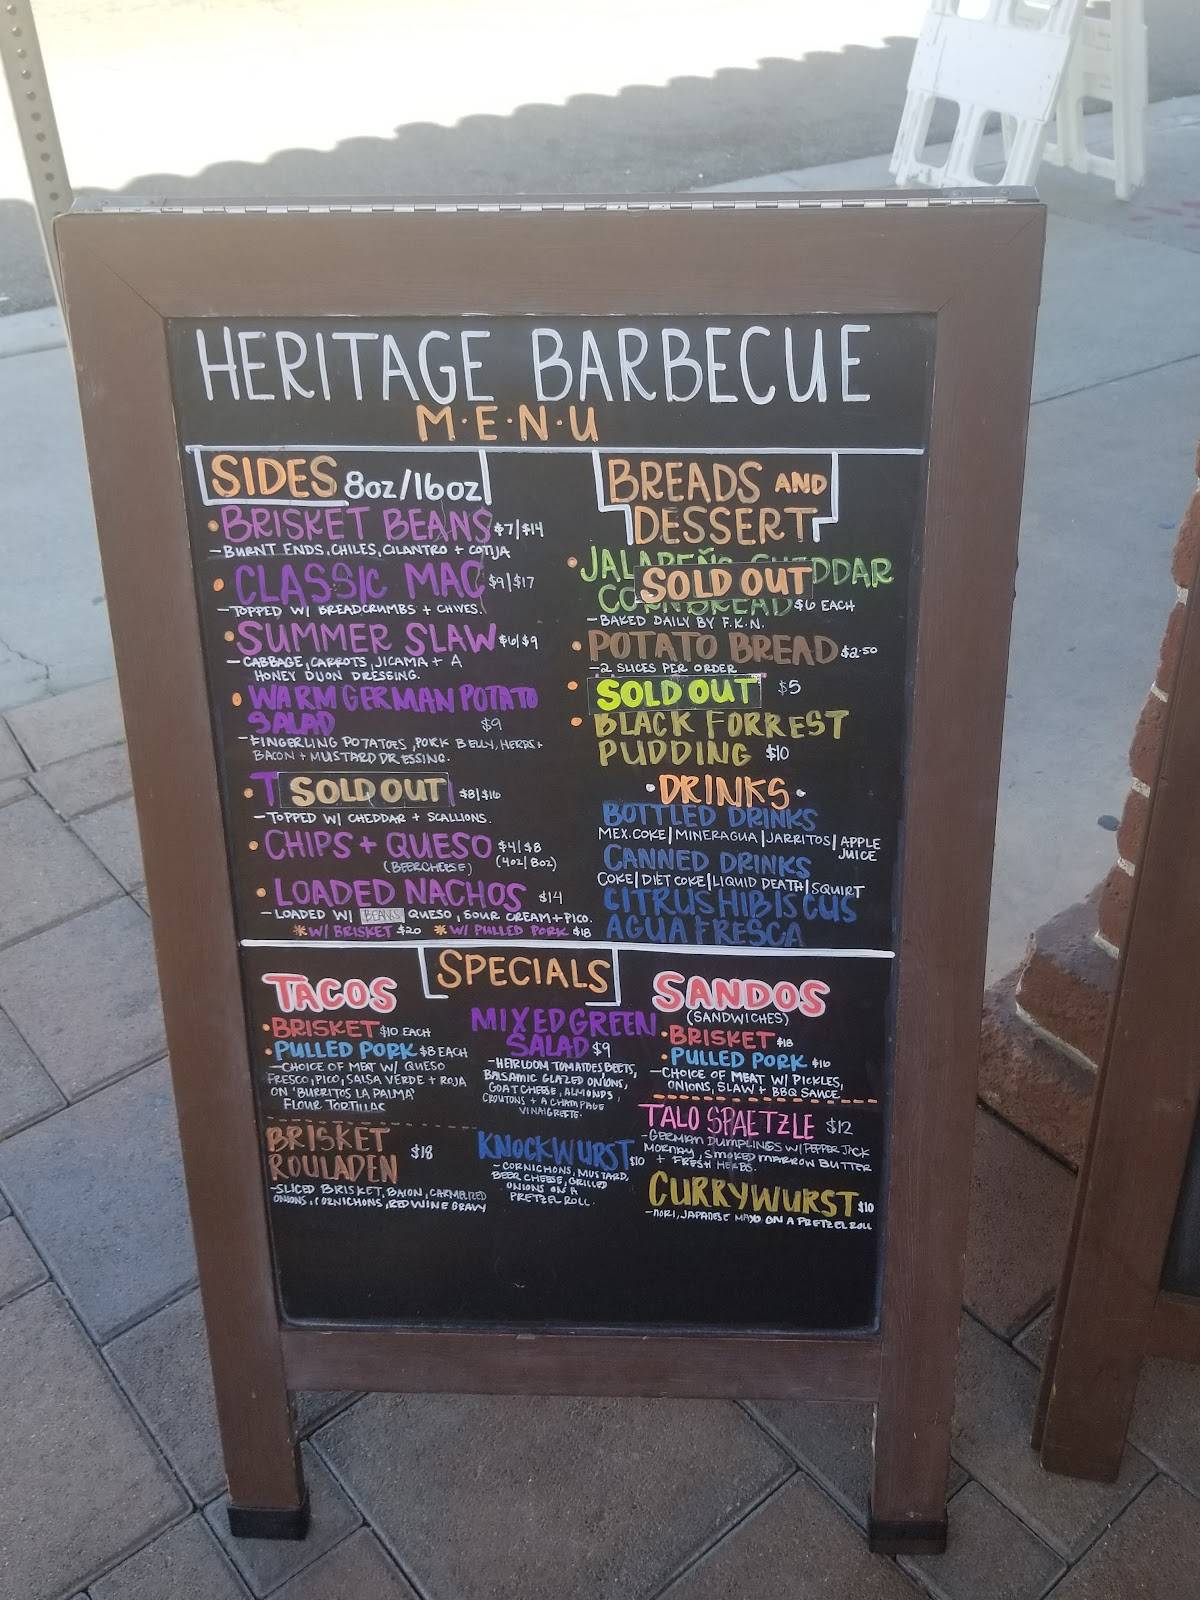 HERITAGE BARBECUE
M·E·N·U
SIDES 8oz/16oz
• BRISKET BEANS $7/$14
- BURNT ENDS, CHILES, CILANTRO + COTIJA
• CLASSIC MAC $9/$17
- TOPPED W/ BREADCRUMBS + CHIVES.
• SUMMER SLAW $6/$9
- CABBAGE, CARROTS, JICAMA + A
HONEY DIJON DRESSING.
• WARM GERMAN POTATO
SALAD $9
- FINGERLING POTATOES, PORK BELLY, HERBS +
BACON + MUSTARD DRESSING.
• T SOLD OUT $8/$16
- TOPPED W/ CHEDDAR + SCALLIONS.
• CHIPS + QUESO $4/$8
(BEERCHEESE) (4oz/8oz)
• LOADED NACHOS $14
- LOADED W/ BEANS QUESO, SOUR CREAM + PICO.
* W/ BRISKET $20 * W/ PULLED PORK $18
BREADS AND
DESSERT
• JALAPEÑO CHEDDAR
SOLD OUT
CORNBREAD $6 EACH
- BAKED DAILY BY F.K.N.
• POTATO BREAD $2.50
- 2 SLICES PER ORDER
• SOLD OUT $5
• BLACK FORREST
PUDDING $10
• DRINKS •
BOTTLED DRINKS
MEX.COKE | MINERAGUA | JARRITOS | APPLE
JUICE
CANNED DRINKS
COKE | DIET COKE | LIQUID DEATH | SQUIRT
CITRUS HIBISCUS
AGUA FRESCA
SPECIALS
TACOS
• BRISKET $10 EACH
• PULLED PORK $8 EACH
- CHOICE OF MEAT W/ QUESO
FRESCO, PICO, SALSA VERDE + ROJA
ON "BURRITOS LA PALMA"
FLOUR TORTILLAS
BRISKET
ROULADEN $18
- SLICED BRISKET, BACON, CARMELIZED
ONIONS, CORNICHONS, RED WINE GRAVY
MIXED GREEN
SALAD $9
- HEIRLOOM TOMATOES, BEETS,
BALSAMIC GLAZED ONIONS,
GOAT CHEESE, ALMONDS,
CROUTONS + A CHAMPAGE
VINAIGRETTE.
KNOCKWURST $10
- CORNICHONS, MUSTARD,
BEER CHEESE, GRILLED
ONIONS ON A
PRETZEL ROLL.
SANDOS
(SANDWICHES)
• BRISKET $18
• PULLED PORK $16
- CHOICE OF MEAT W/ PICKLES,
ONIONS, SLAW + BBQ SAUCE
TALO SPAETZLE $12
- GERMAN DUMPLINGS W/ PEPPER JACK
MORNAY, SMOKED MARROW BUTTER
+ FRESH HERBS.
CURRYWURST $10
- NORI, JAPANESE MAYO ON A PRETZEL ROLL